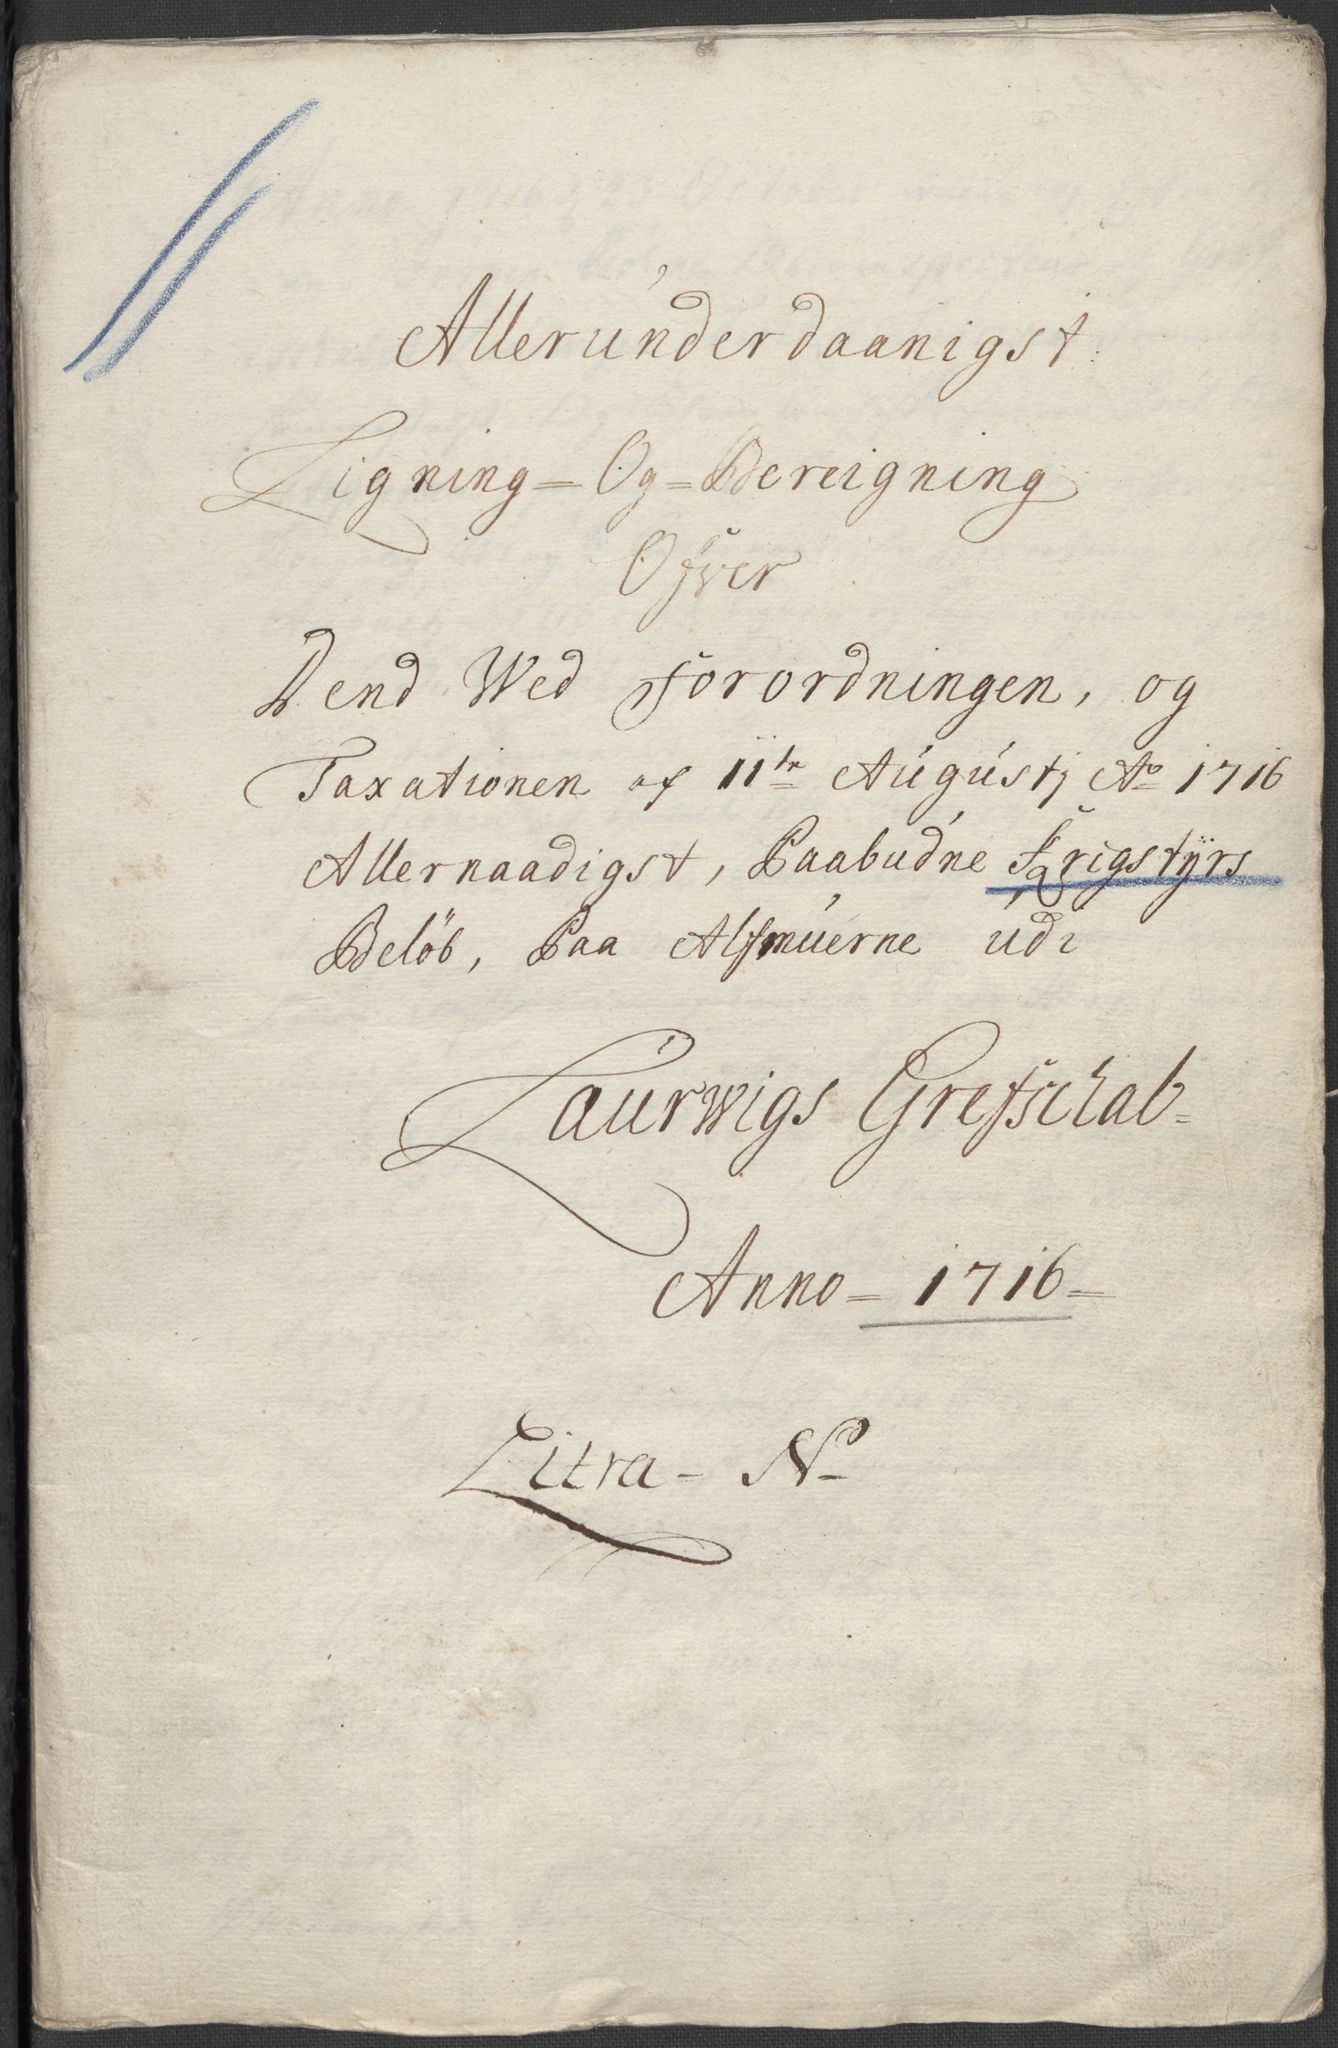 Allerúnderdaanigst
Ligning = Og = Bereigning
Ofver
Dend Wed Forordningen, og
Taxationen af 11te Aúgústj Ao 1716
Allernaadigst, Paabudne Krigstÿrs
Beløb, Paa Allmúerne údi
Laúrwigs Grefschab =
Anno = 1716 =
Litra - N -